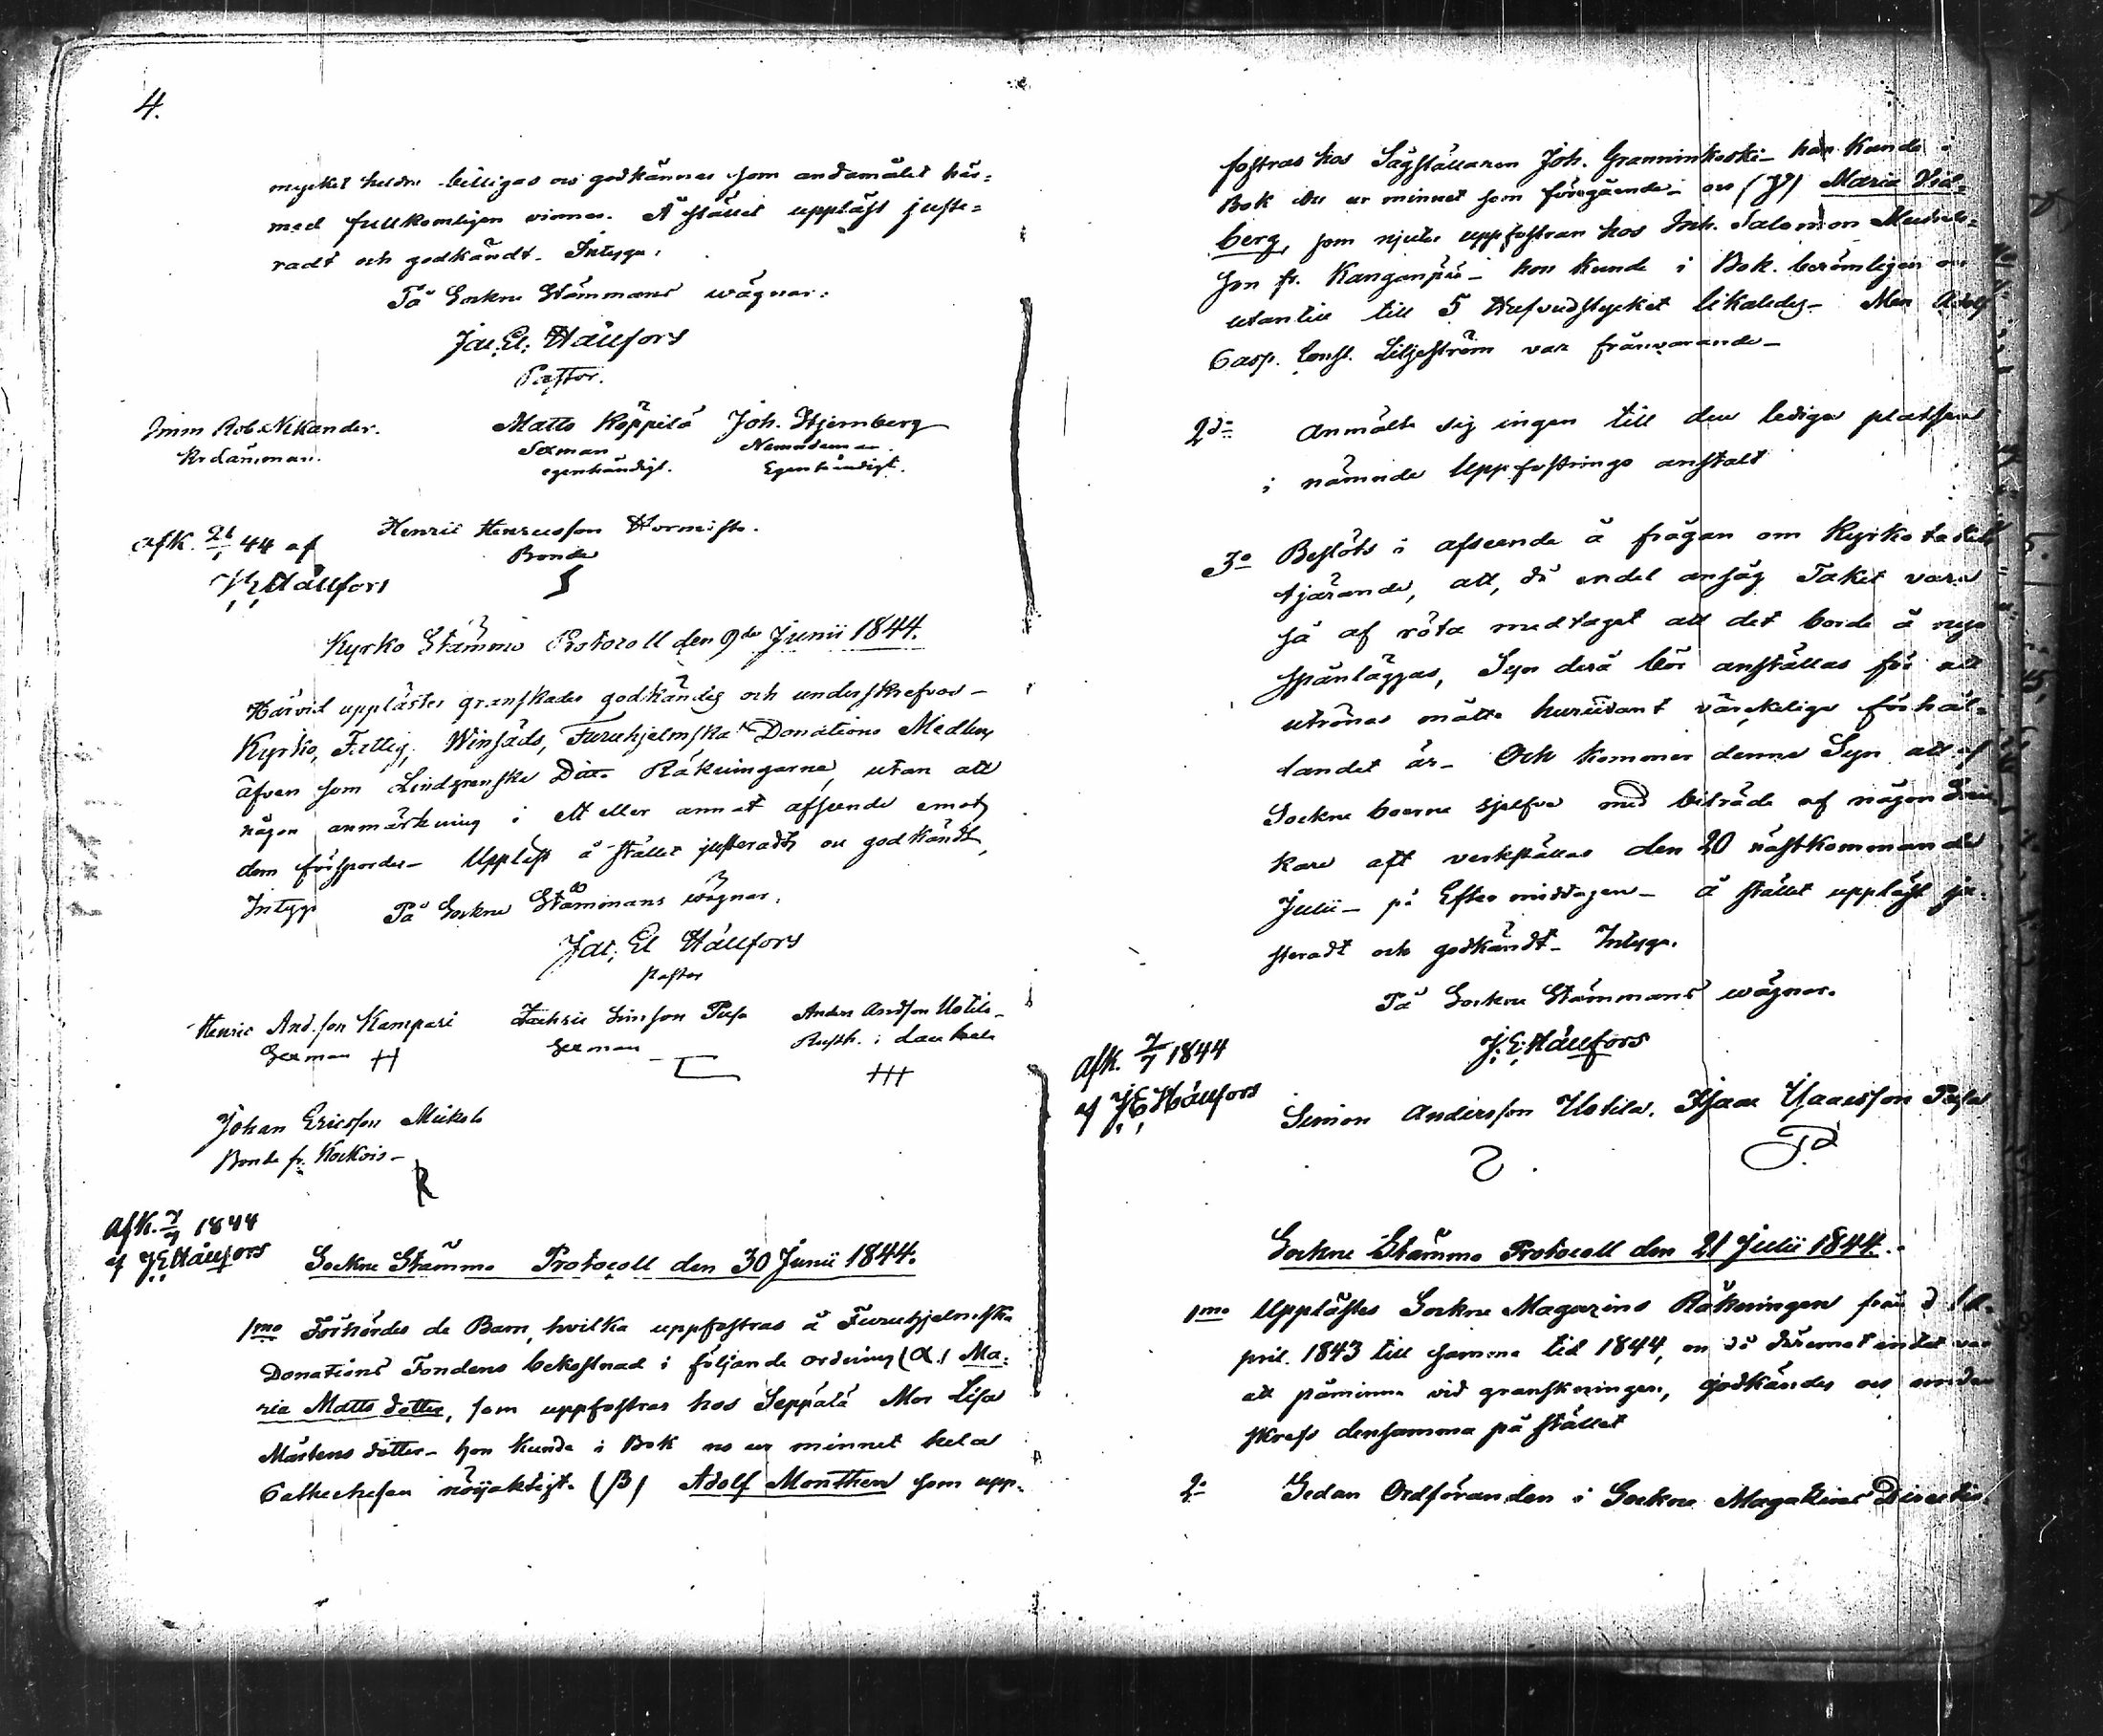 4.
mycket heldre billigas och godkännas som andamålet här=
med fullkomligen vinnes. Å stället uppläst juste=
radt och godkändt. Intyga:
På Sockne Stämmans wägnar:
Jac. El. Hällfors
Pastor.
Imm Rob. Nikander.
Matts Köppilä
Joh. Stjernberg
Sexman
Nämndeman.
egenhändigt.
Egenhändigt.
Henric Henricsson
Bonde
afk. 44 af
J. E. Hällfors
Kyrko Stämmo Protocoll den 9de Junii 1844.
Härvid upplästes granskades godkändes och underskrefvos -
Kyrko, Fattig, Winsäds, Furuhjelmska Donations Medlens
äfven som Lindgrenska Dito Räkningarne, utan att
någon anmärkning i ett eller annat afseende emot
dem förspordes - Uppläst å stället justeradt och godkändt,
Intyga På Sockne Stämmans wägnar,
Jac. El Hällfors
Pastor
Henric And.son Kampari
Sexman
Simson Pusa
Sexman
Anders Andsson Uotila
Rusth. i
Johan Ericsson Mickola
Bonde fr.
Afk. 7/7 1844
af J. E. Hällfors
Sockne Stämmo Protocoll den 30 Junii 1844.
1mo Förhördes de Barn, hvilka uppfostras å Furuhjelmska
Donations Fondens bekostnad i följande ordning (α) Ma=
ria Matts dotter, som uppfostras hos Seppälä Mor Lisa
Mårtens dotter - hon kunde i Bok och ur minnet hela
Cathechesen nöyaktigt. (β) Adolf Monthen som upp=
fostras hos Joh. Granninkoski - han kunde i
Bok och ur minnet som föregående - och (γ) Maria Vid=
berg, som njuter uppfostran hos Inh. Salomon
son fr. Kanganpää - hon kunde i Bok. berömligen och
utantill till 5 Hufvudstycket likaledes - Men Adolf
Casp. Const. Liljeström var frånvarande -
2do Anmälte sig ingen till den lediga platsen
i nämnde Uppfostrings anstalt
3o Beslöts i afseende å frågan om Kyrkotakets
tjärande, att, då endel ansåg Taket vara
så af röta medtaget att det borde å nyo
spånläggas, Syn derå bör anställas för att
utrönas måtte huruvidant värckeliga förhål=
landet är - Och kommer denna Syn att af
Sockne boerne sjelfva med biträde af någon
kare att verkställas den 20 nästkommande
Julii - på Eftermiddagen - å stället uppläst ju=
steradt och godkändt - Intyga.
På Sockne Stämmans wägnar.
J. E. Hällfors
Afk. 7/7 1844
af J. E. Hällfors
Simon Andersson Uotila. Isaac Isaacsson Pusa
Sockne Stämmo Protocoll den 21 Julii 1844.
1mo Upplästes Sockne Magazins Räkningen från d. 1 A=
pril. 1843 till samma tid 1844, och då deremot intet var
att påminna vid granskningen, godkändes och under
skrefs densamma på stället
2o Sedan Ordföranden i Sockne Magazines Directio=